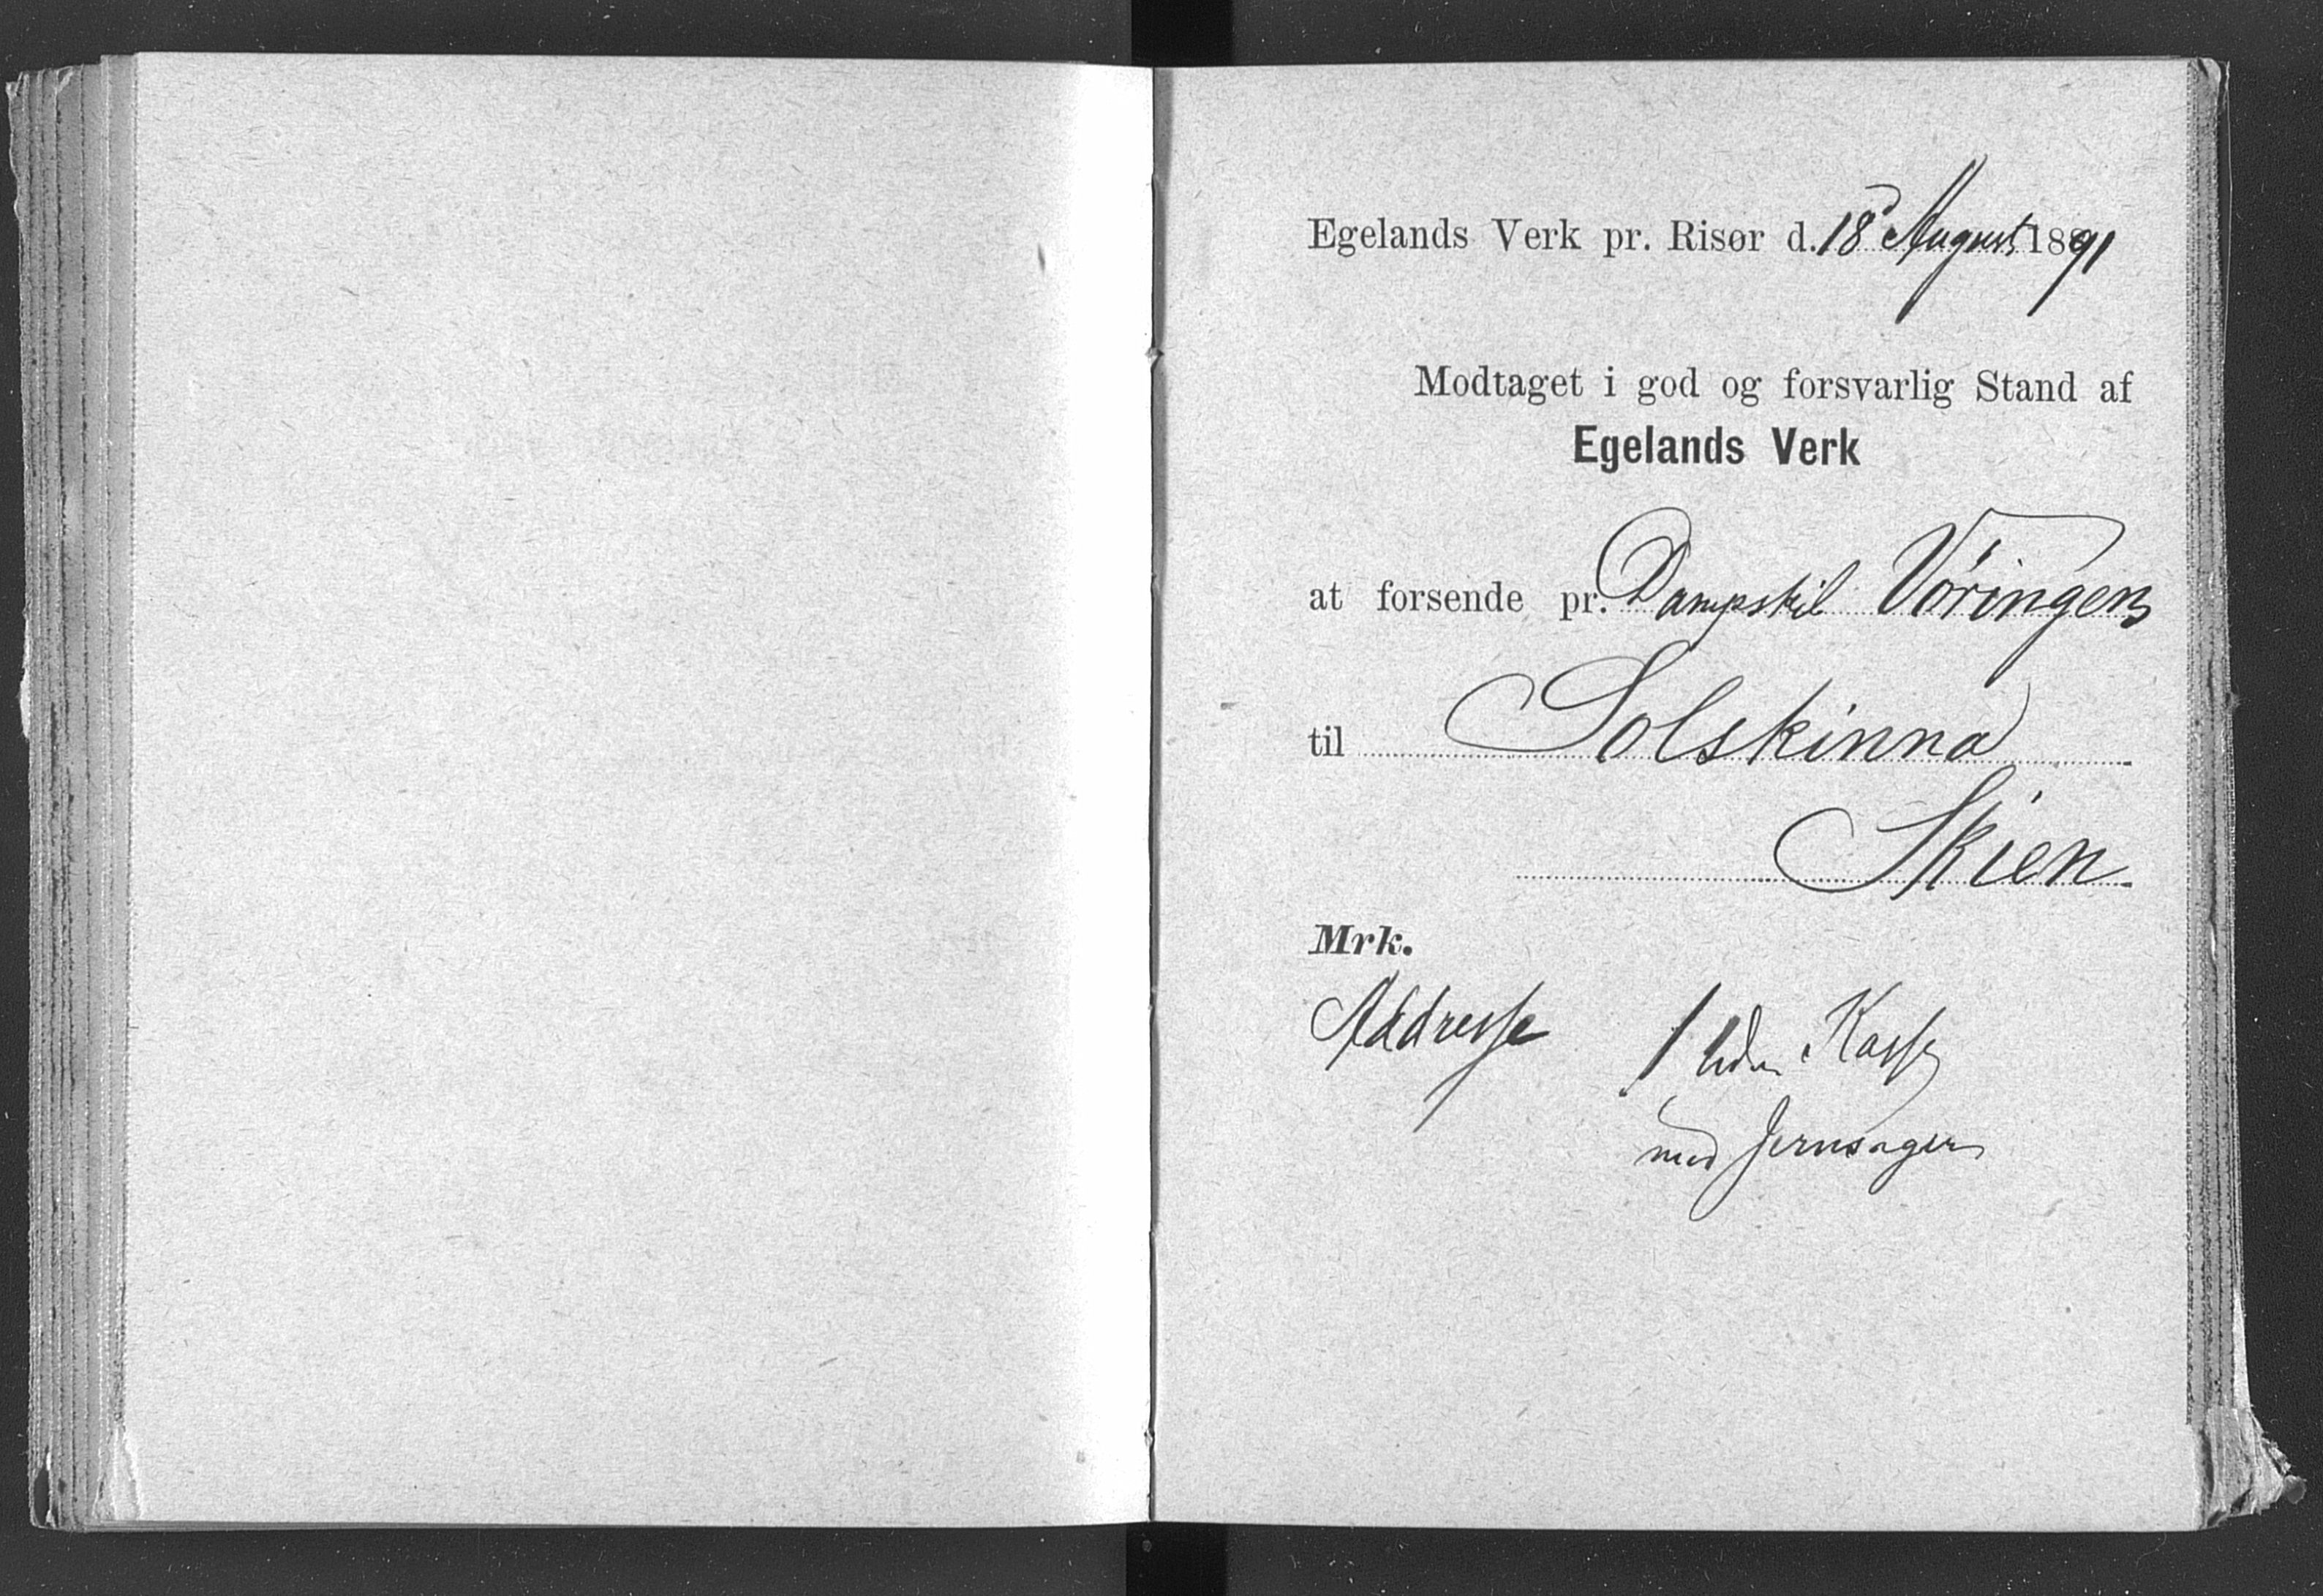 Egelands Verk pr. Risør d. 18 August 1891
Modtaget i god og forsvarlig Stand af
Egelands Verk
at forsende pr. Dampskib Vøringen
til Solskinna
Skien
Mrk.
Addresse 1 Kasse
med Jernsager